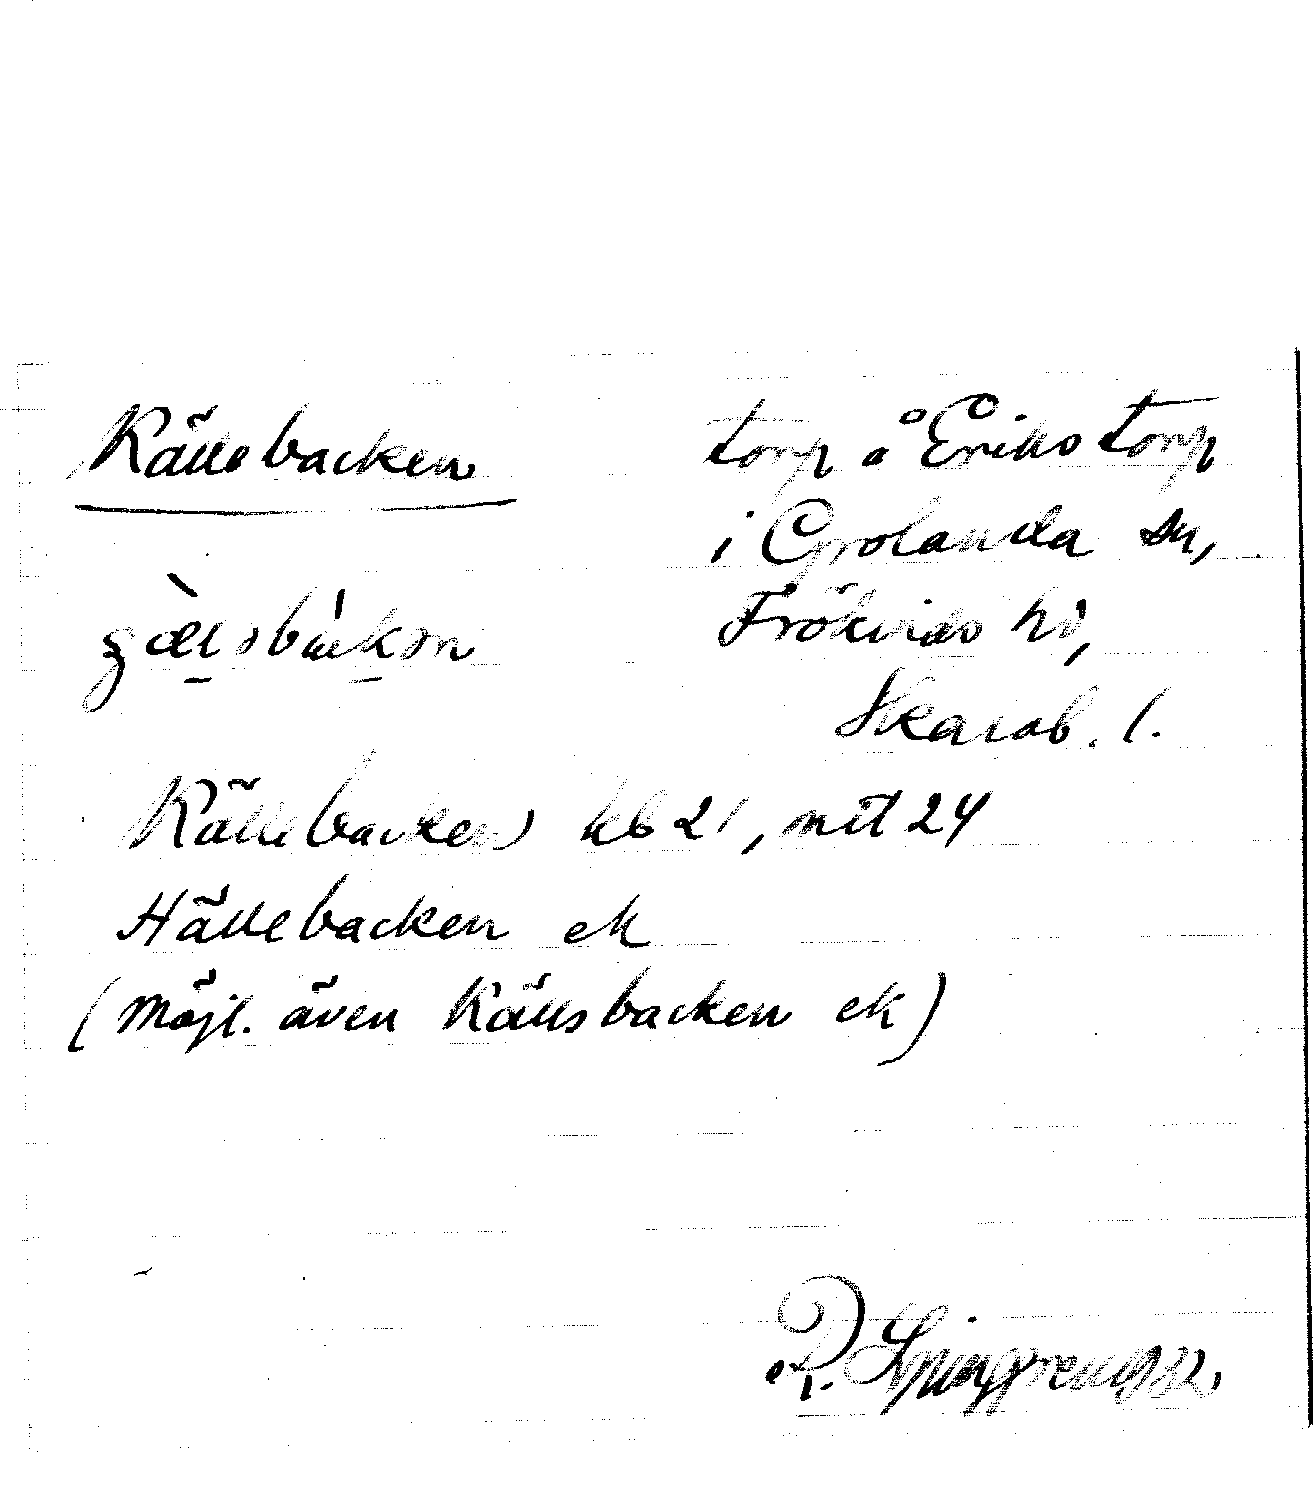 Källebacken
torp å Erikstorp
i Grolanda sn,
Frökinds hd,
Skarab. l.
Källebacken hb 21, mtl 24
Hällebacken ek
(möjl. även Källsbacken ek)
R. Ljunggren 1932.